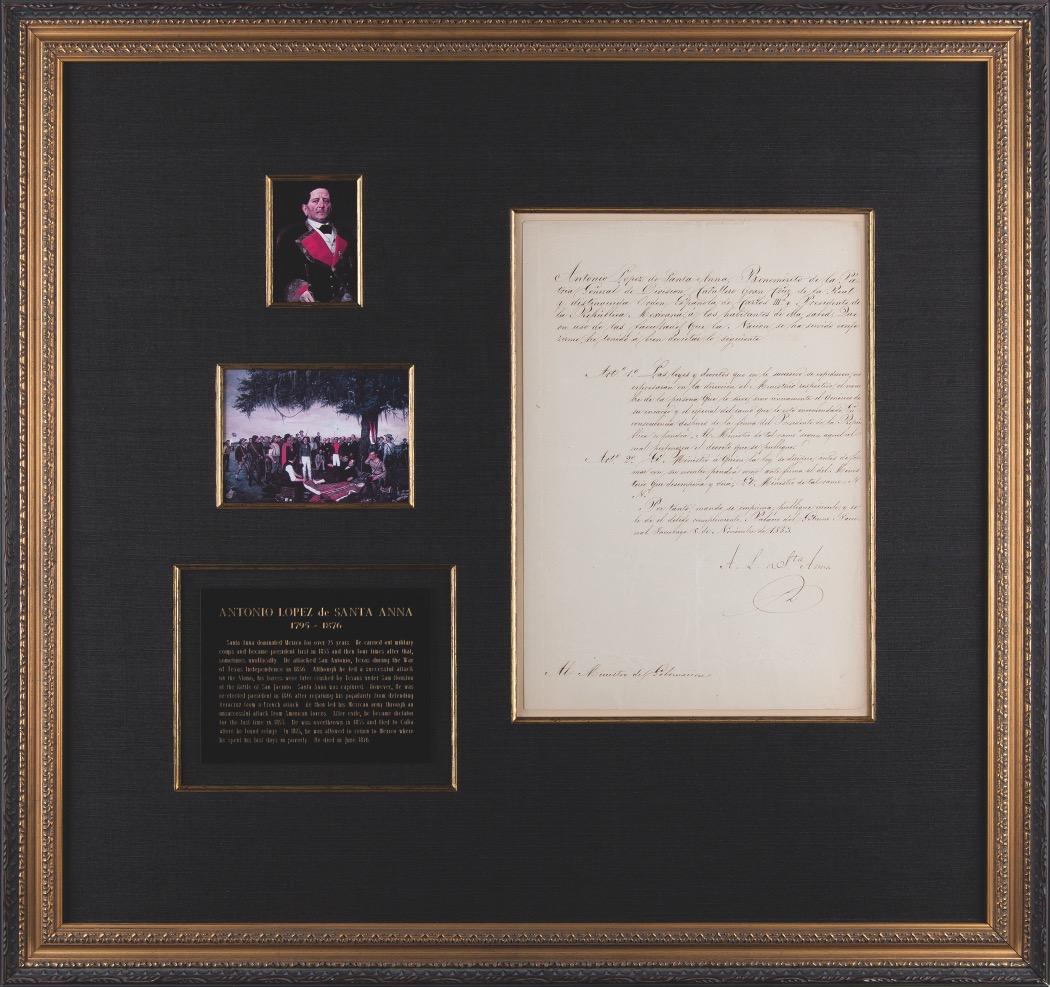 ANTONIO LOPEZ de SANTA ANNA
1795 - 1876
Santa Anna dominated Mexico for over 25 years. He carried out military
coups and became president first in 1833 and then four times after that,
sometimes unofficially. He attacked San Antonio, Texas during the War
of Texas Independence in 1836. Although he led a successful attack
on the Alamo, his forces were later crushed by Texans under Sam Houston
at the Battle of San Jacinto. Santa Anna was captured. However, he was
re-elected president in 1846 after regaining his popularity from defending
Veracruz from a French attack. He then led his Mexican army through an
unsuccessful attack from American forces. After exile, he became dictator
for the last time in 1853. He was overthrown in 1855 and fled to Cuba
where he found refuge. In 1874, he was allowed to return to Mexico where
he spent his last days in poverty. He died in June 1876.
Antonio Lopez de Santa Anna, Benemérito de la Pá-
tria General de Division, Caballero Gran Cruz de la Real
y distinguida Orden Española de Carlos III y Presidente de
la República Mexicana, á los habitantes de ella, sabed: Que
en uso de las facultades que la Nacion se ha servido confe-
rirme, he tenido á bien decretar lo siguiente
Artº 1º Las leyes y decretos que en lo sucesivo se espidieren
espresarán en la direccion al Ministerio respectivo, el nom-
bre de la persona que lo sirve
su encargo y el
consecuencia despues de la firma del Presidente de la Repú-
blica se pondrá, Al Ministro de tal ramo
el decreto que se publique.
Artº 2º El Ministro á quien la ley se dirigiere, antes de fir-
mar con su nombre pondrá como ante firma el del Minis-
terio que desempeña y dirá, El Ministro de tal ramo N.
N.
Por tanto, mando se imprima, publique, circule, y se
le dé el debido cumplimiento. Palacio del Gobierno Nacio-
nal Tacubaya 8 de Noviembre de 1853.
A. L. de Sta Anna
Al Ministro de Gobernacion